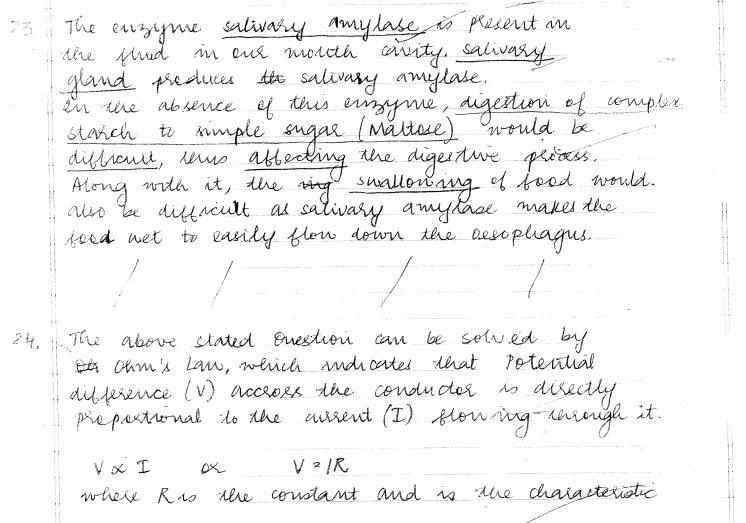 23 The enzyme salivary amylase is present in
the fluid in our mouth cavity. salivary
gland produces the salivary amylase.
In the absence of this enzyme, digestion of complex
starch to simple sugar (Maltose) would be
difficult, thus affecting the digestive process.
Along with it, the swallowing of food would.
also be difficult as salivary amylase makes the
food wet to easily flow down the oesophagus.
24. The above stated Question can be solved by
Ohm's Law, which indicates that Potential
difference (V) accross the conductor is directly
proportional to the current (I) flowing through it.
V ∝ I or V = IR
where R is the constant and is the characteristic